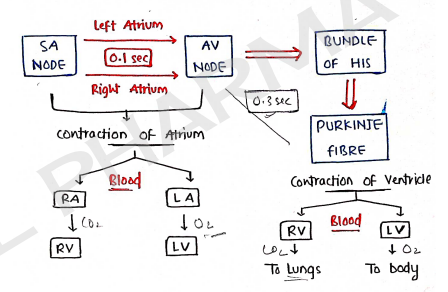 Left Atrium
SA NODE
0.1 sec
AV NODE
BUNDLE OF HIS
Right Atrium
0.3 sec
PURKINJE FIBRE
Contraction of Atrium
Contraction of Ventricle
Blood
RA
LA
CO₂
O₂
RV
LV
Blood
RV
LV
CO₂
O₂
To Lungs
To body
PHARMA